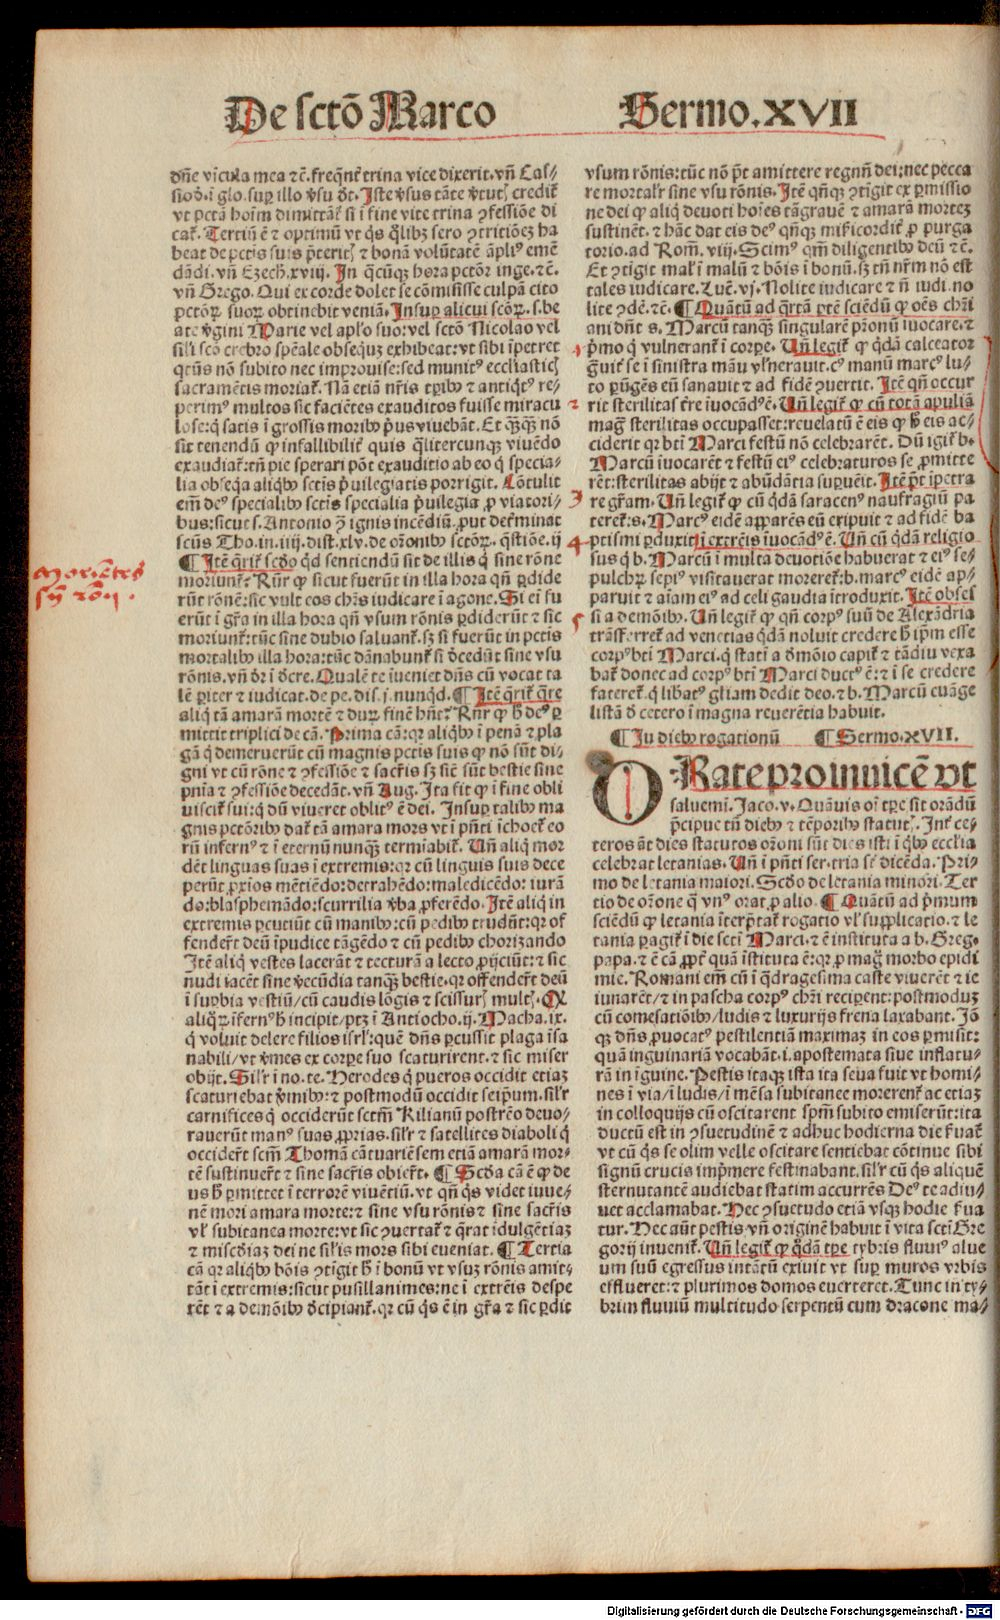 De sctō Marco
Sermo.XVII
dn̄e vīcula mea ⁊c̄. freqn̄t᷑ trina vice dixerit. vn̄ Cas⸗
siod̄. i glo. suꝑ illo v̄su d̄r. Iste v̄sus tāte v̄tutꝭ credit᷑
vt pctā hoīm dimittāt᷑ si ī fine vite trina ꝯfessiōe di
cat᷑. Tertiū ē ⁊ optimū vt q̄s q̄libꝫ sero ꝯtritiōeꝫ ha
beat de pctis suis p̄teritꝭ ⁊ bonā volūtatē āpliꝰ emē
dādi. vn̄ Ezech̄. xviij. In q̄cūqꝫ hora pctōr inge. ⁊c̄.
vn̄ Grego. Qui ex corde dolet se cōmisisse culpā cito
pctōꝝ suoꝝ obtinebit veniā. Insuꝑ alicui sctōꝝ. s. be
ate v̄gini Marie vel apl̄o suo: vel sctō Nicolao vel
sil̓i scō crebro sp̄eale obsequꝫ exhibeat: vt sibi īpetret
qtūs nō subito nec improuise: sed munitꝰ eccl̄iasticꝭ
sacramētis moriat᷑. Nā etiā nr̄is tꝑibꝫ ⁊ antiq̄tꝰ re⸗
perimꝰ multos sic faciētes exauditos fuisse miracu
lose: q̄ satis ī grossis moribꝫ pͥus viuebāt. Et q̄ꝫq̄ꝫ nō
sit tenendū ꝙ infallibilit᷑ quis q̄litercunqꝫ viuēdo
exaudiat᷑: tn̄ pie sperari pōt exauditio ab eo q̄ specia⸗
lia obseq̄a aliqͥbꝫ sctis pͥuilegiatis porrigit. Cōtulit
em̄ deꝰ specialibꝫ sctis specialia pͥuilegia ꝓ viatori⸗
bus: sicut s. Antonio ꝯ̄ ignis incēdiū. prout det̄minat
scūs Tho. in. iiij. dist. xlv. de or̄onibꝫ sctōꝝ. q̄stiōe. ij
¶ Itē q̄rit᷑ scd̄o qd̄ sentiendū sit de illis q̄ sine rōne
moriunt᷑? Rn̄r ꝙ sicut fuerūt in illa hora qn̄ ꝑdide
rūt rōnē: sic vult eos chr̄s iudicare ī agone. Si em̄ fu
erūt ī gr̄a in illa hora qn̄ vsum rōnis ꝑdiderūt ⁊ sic
moriunt᷑: tūc sine dubio saluant᷑. sꝫ si fuerūt in pctis
mortalibꝫ illa hora: tūc dānabunt᷑ si d̄cedūt sine vsu
rōnis. vn̄ d̄r ī d̄cre. Qualē te iueniet dn̄s cū vocat ta
lē ꝑiter ⁊ iudicat. de pe. dis. j. nunq̄d. ¶ Itē q̄rit᷑ q̄re
aliq̄ tā amarā mortē ⁊ duꝝ finē hn̄t? Rn̄r ꝙ h̄ deꝰ ꝑ
mittit triplici de cā. Prima cā: qꝛ aliqͥbꝫ ī penā ⁊ pla
gā q̄ demeruerūt cū magnis pctis suis ꝙ nō sūt di⸗
gni vt cū rōne ⁊ ꝯfessiōe ⁊ sacr̄is sꝫ sic̄ sūt bestie sine
pn̄ia ⁊ ꝯfessiōe decedāt. vn̄ Aug. Ita fit ꝙ ī fine obli
uiscit᷑ sui: q̄ dū viueret oblitꝰ ē dei. Insuꝑ talibꝫ ma
gnis pctōribꝫ dat᷑ tā amara mors vt ī pn̄ti īchoet᷑ eo
rū infernꝰ ⁊ ī eternū nunqꝫ̄ termīabit᷑. Vn̄ aliq̄ mor
dēt linguas suas ī extremis: qꝛ cū linguis suis dece
perūt ꝓxīos mētiēdo: detrahēdo: maledicēdo: iurā
do: blasphemādo: scurrilia v̄ba ꝓferēdo. Itē aliq̄ in
extremis ꝑcutiūt cū manibꝫ: cū pedibꝫ trudūt: qꝛ of
fenderūt deū īpudice tāgēdo ⁊ cū pedibꝫ chorizando
Itē aliq̄ vestes lacerāt ⁊ tecturā a lecto ꝓijciūt: ⁊ sic
nudi iacēt sine v̄ecūdia tanqꝫ̄ bestie. qꝛ offenderūt deū
ī suꝑbia vestiū/ cū caudis lōgis ⁊ scissurꝭ multꝭ. Q
aliq̄ꝝ īfernꝰ h̄ incipit/ ptꝫ ī Antiocho. ij. Macha. ix.
q̄ voluit delere filios isrl̄: quē dn̄s ꝑcussit plaga īsa
nabili/ vt v̄mes ex corꝑe suo scaturirent. ⁊ sic miser
obijt. Sil̓r ī no. te. Herodes q̄ pueros occidit etiaꝫ
scaturiebat v̄mibꝫ: ⁊ postmodū occidit seip̄um. sil̓r
carnifices q̄ occiderūt sctm̄ Kilianū postrēo deuo⸗
rauerūt manꝰ suas ꝓprias. sil̓r ⁊ satellites diaboli q̄
occiderūt scm̄ Thomā cātuariēsem etiā amarā mor⸗
tē sustinuerūt ⁊ sine sacr̄is obierūt. ¶ Scd̄a cā ē ꝙ de
us h̄ ꝑmittet ī terrorē viuētiū. vt qn̄ q̄s videt iuue⸗
nē mori amara morte: ⁊ sine vsu rōnis ⁊ sine sacr̄is
vl̓ subitanea morte: vt sic ꝯuertat᷑ ⁊ q̄rat īdulgētiaꝫ
⁊ miscd̄iaꝫ dei ne sil̓is mors sibi eueniat. ¶ Tertia
cā qꝛ aliqͥbꝫ bōis ꝯtīgit h̄ ī bonū vt vsuꝫ rōnis amit⸗
tāt ī extremis: sicut pusillanimes: ne ī extrēis despe
rēt ⁊ a demōibꝫ d̄cipiant᷑. qꝛ cū q̄s ē in gr̄a ⁊ sic ꝑdit
morientes
sn̄ rōn
vsum rōnis: tūc nō pt̄ amittere regnū dei: nec pecca
re mortal̓r sine vsu rōnis. Itē qn̄qꝫ ꝯtīgit ex ꝑmissio
ne dei ꝙ aliq̄ deuoti hoīes tā grauē ⁊ amarā morteꝫ
sustinēt. ⁊ hāc dat eis deꝰ qn̄qꝫ mīẜicordit᷑ ꝓ purga
torio. ad Rom̄. viij. Scimꝰ qm̄ diligentibꝫ deū ⁊c̄.
Et ꝯtīgit mal̓ ī malū ⁊ bōis ī bonū. sꝫ tn̄ nr̄m nō est
tales iudicare. Luc̄. vj. Nolite iudicare ⁊ n̄ iudi. no
lite ꝯdē. ⁊c̄. ¶ Quātū ad q̄rtā ꝑtē sciēdū ꝙ oēs chr̄i
ani dn̄t s. Marcū tanqꝫ̄ singularē pr̄onū īuocare. ⁊
pͥmo q̄ vulnerant᷑ ī corꝑe. Vn̄ legit᷑ ꝙ q̄dā calceator
grauit᷑ se ī sinistra māu vl̓nerauit. cꝰ manū marcꝰ lu⸗
to ꝑūgēs eū sanauit ⁊ ad fidē ꝯuertit. Itē qn̄ occur
rit sterilitas tr̄e īuocādꝰ ē. Vn̄ legit᷑ ꝙ cū totā apuliā
maḡ sterilitas occupasset: reuelatū ē eis ꝙ h̄ eis ac⸗
ciderit qꝛ bt̄i Marci festū nō celebrarēt. Dū igit᷑ b.
Marcū īuocarēt ⁊ festū eiꝰ celebraturos se ꝓmitte
rēt: sterilitas abijt ⁊ abūdātia suꝑueīt. Itē pt̄ īpetra
re gr̄am. Vn̄ legit᷑ ꝙ cū q̄dā saracenꝰ naufragiū pa
teret᷑: s. Marcꝰ eidē apparēs eū eripuit ⁊ ad fidē ba
ptismi ꝑduxit. ī extrēis īuocādꝰ ē. Vn̄ cū q̄dā religio
sus q̄ b. Marcū ī multa deuotiōe habuerat ⁊ eiꝰ se⸗
pulchꝝ sepiꝰ visitauerat moreret᷑: b. marcꝰ eidē ap⸗
paruit ⁊ aīam eiꝰ ad celi gaudia ītroduxit. Itē obses
si a demōibꝫ. Vn̄ legit᷑ ꝙ qn̄ corpꝰ suū de Alexādria
trāsferret᷑ ad venetias q̄dā noluit credere h̄ ip̄m esse
corpꝰ bt̄i Marci. q̄ statī a d̄mōio capit᷑ ⁊ tādiu vexa
bat᷑ donec ad corpꝰ bt̄i Marci ductꝰ ē: ⁊ ī se credere
fateret᷑. q̄ lib̄atꝰ gl̄iam dedit deo. ⁊ b. Marcū euāge
listā d̄ cetero ī magna reuerētia habuit.
¶ In diebꝫ rogationū ¶ Sermo. XVII.
ORate pro inuicē vt
saluemī. Jaco. v. Quāuis oī tꝑe sit orādū
p̄cipue tn̄ diebꝫ ⁊ tēporibꝫ statutꝭ. Int᷑ ce⸗
teros aūt dies statutos or̄oni sūt dies isti ī qͥbꝫ eccl̄ia
celebrat letanias. Vn̄ ī pn̄ti ser. tria st̄ dicēda. Pri⸗
mo de letania maiori. Scd̄o de letania minori. Ter
tio de or̄one q̄ vnꝰ orat ꝓ alio. ¶ Quātū ad pͥmum
sciēdū ꝙ letania īterp̄tat᷑ rogatio vl̓ supplicatio. ⁊ le
tania ꝑagit᷑ ī die sctī Marci. ⁊ ē instituta a b. Greg.
papa. ⁊ ē cā ꝓpt᷑ quā īstituta ē: qꝛ ꝓ mag̊ morbo epidi
mie. Romani em̄ cū ī q̄dragesima caste viuerēt ⁊ ie
iunarēt/ ⁊ in pascha corpꝰ chr̄i reciꝑent: postmoduꝫ
cū comesatiōibꝫ/ ludis ⁊ luxurijs frena laxabant. Iō
qꝫ dn̄s ꝓuocatꝰ pestilentiā maximaꝫ in eos ꝑmisit:
quā inguinariā vocabāt. i. apostemata siue inflatu⸗
rā in īguine. Pestis itaqꝫ ista ita seua fuit vt homi⸗
nes ī via/ ī ludis/ ī mēsa subitanee morerent᷑ ac etiaꝫ
in colloquijs cū oscitarent spm̄ subito emiserūt: ita
ductū est in ꝯsuetudinē ⁊ adhuc hodierna die ẜuat᷑
vt cū q̄s se olim velle oscitare sentiebat cōtinue sibi
signū crucis impͥmere festinabant. sil̓r cū q̄s aliquē
sternutantē audiebat statim accurrēs Deꝰ te adiu⸗
uet acclamabat. Hec ꝯsuetudo etiā vsqꝫ hodie ẜua
tur. Hec aūt pestis vn̄ originē habuit ī vita sctī Gre
gorij inuenit᷑. Vn̄ legit᷑ ꝙ q̄dā tꝑe tybris fluuiꝰ alue
um suū egressus intātū exiuit vt suꝑ muros vrbis
efflueret: ⁊ plurimos domos euerteret. Tunc in ty⸗
brim fluuiū multitudo serpentū cum dracone ma⸗
1
2
3
4
5
Digitalisierung gefördert durch die Deutsche Forschungsgemeinschaft - DFG